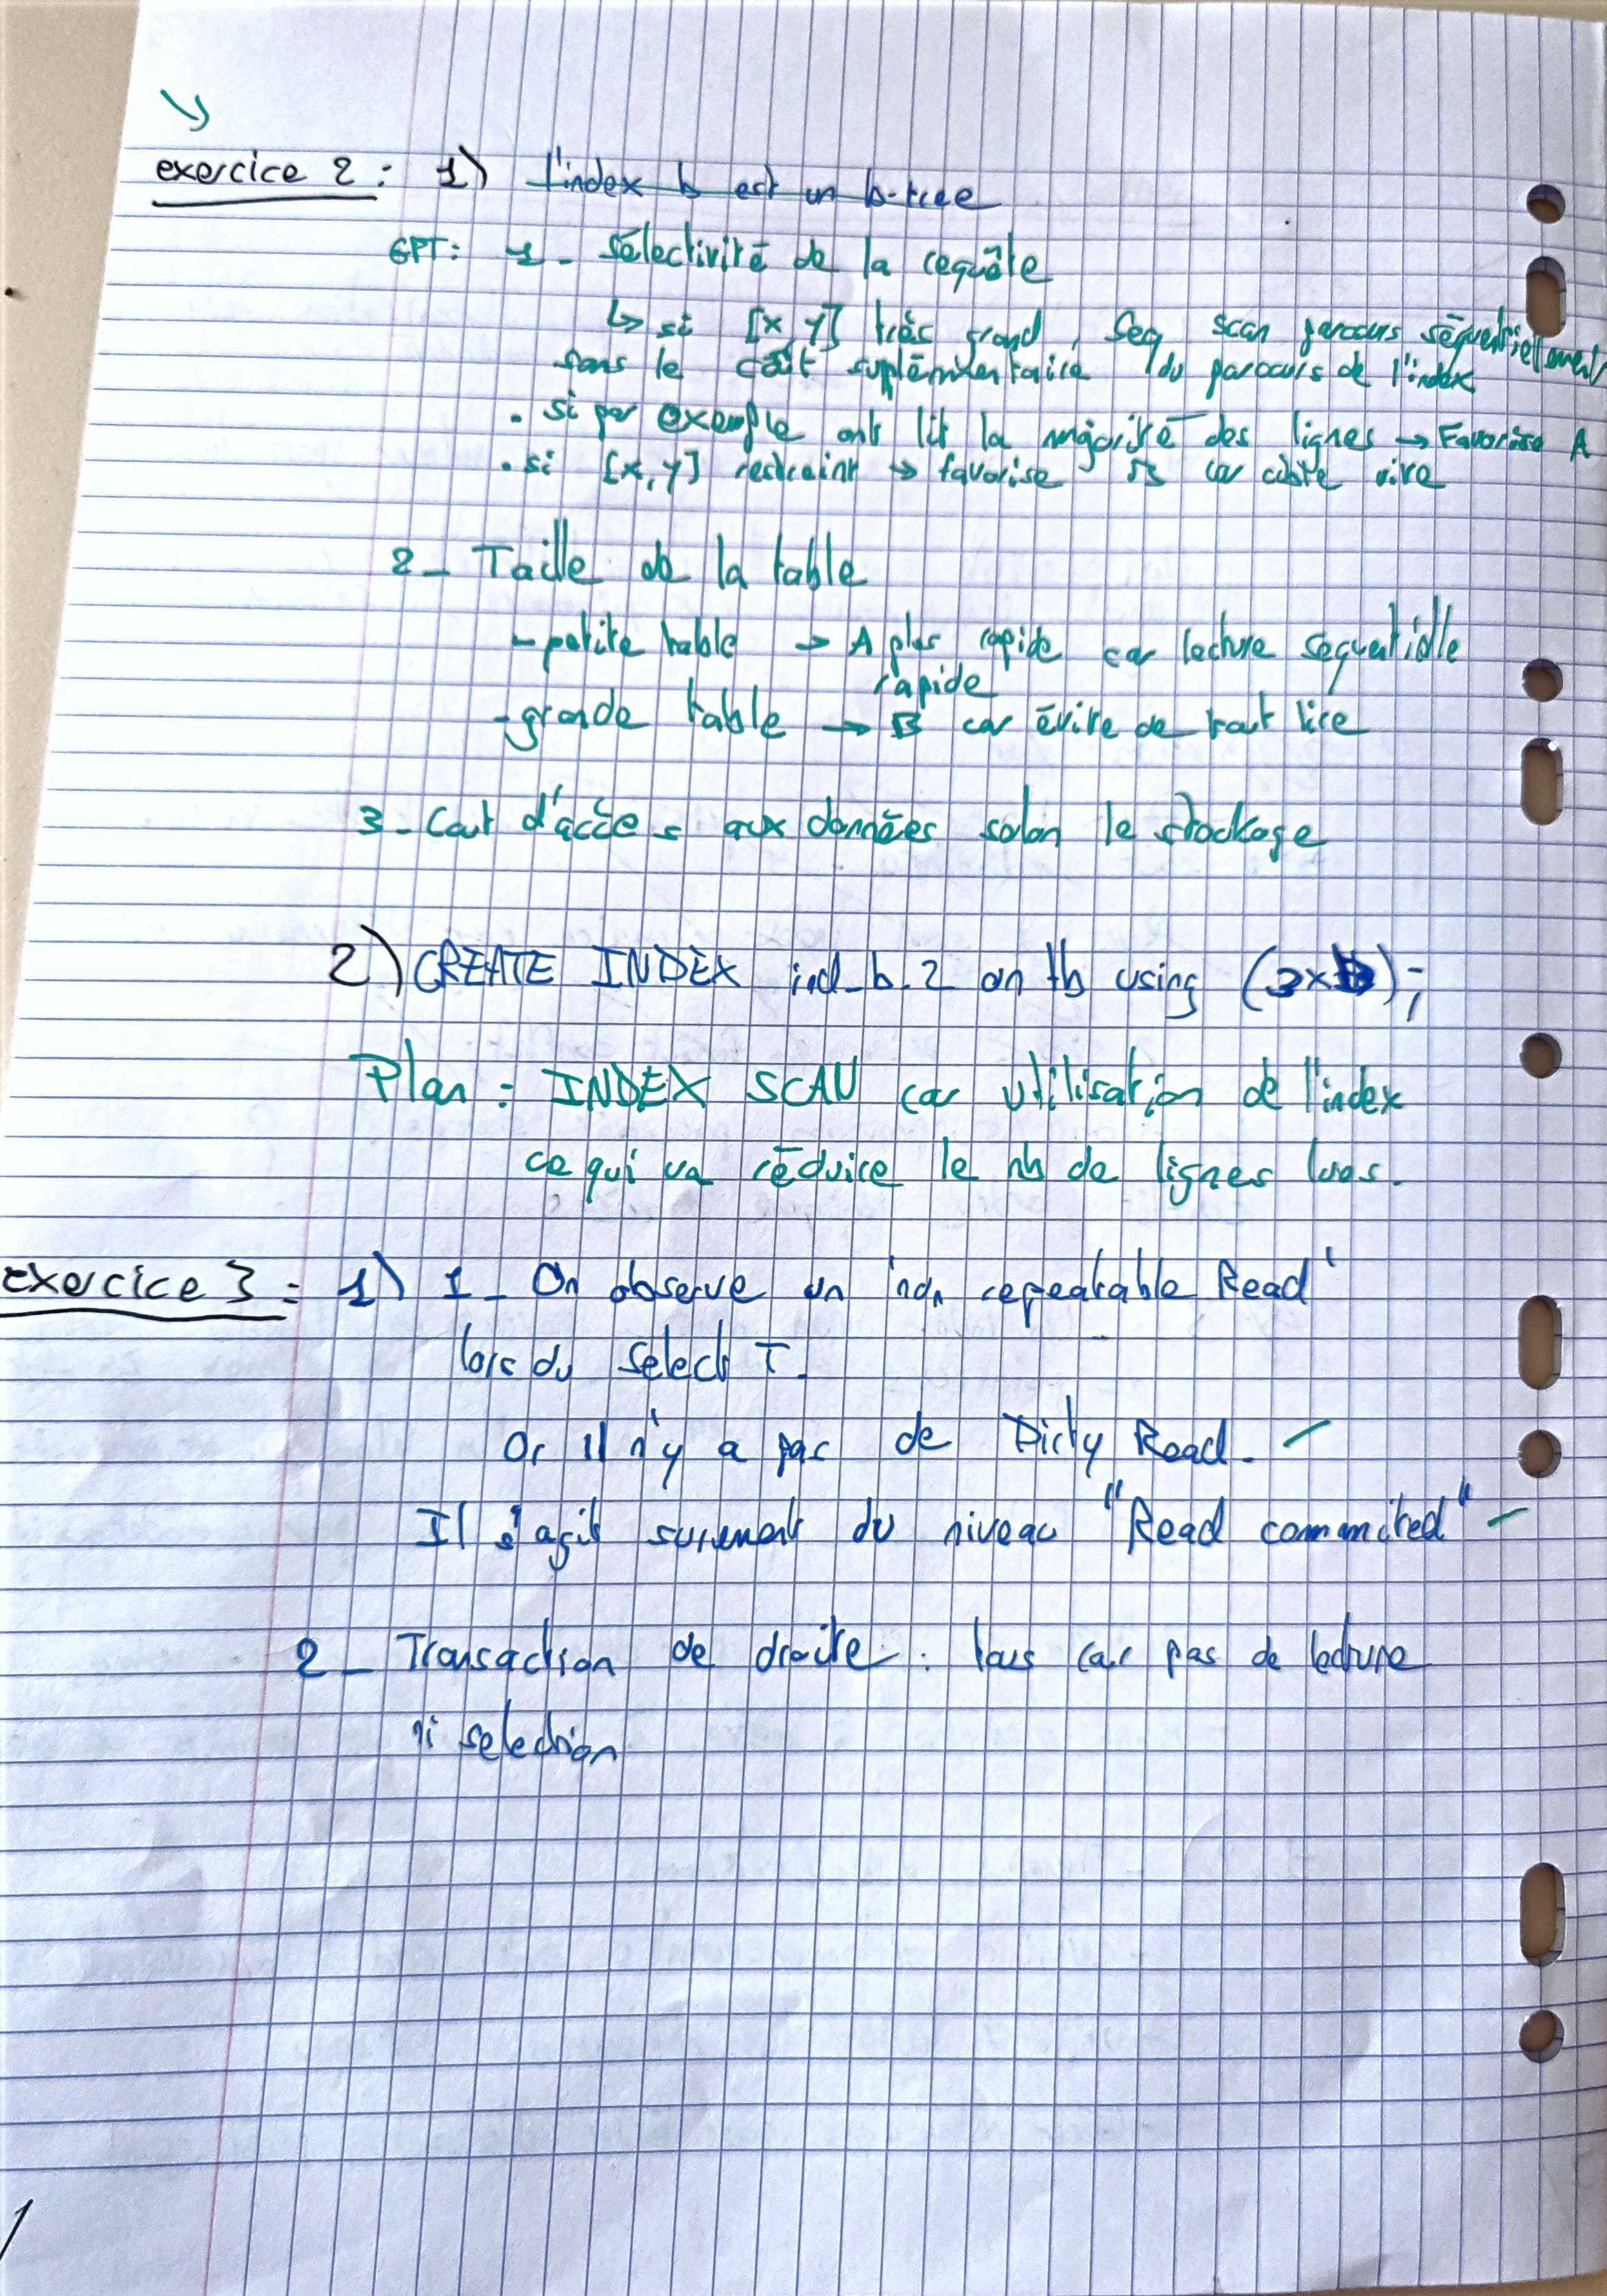 exercice 2 : 1) l'index b est un b-tree
GPT : 1 - Sélectivité de la requête
↳ si [x, y] très grand, Seq scan parcours séquentiellement
sans le coût suplémentaire du parcours de l'index
. si par exemple ont lit la majorité des lignes → Favorise A
. si [x, y] restraint → favorise B car cible vite
2 - Taille de la table
- petite table → A plus rapide car lecture sequentielle
rapide
- grande table → B car évite de tout lire
3 - Cout d'accès aux données selon le stockage
2) CREATE INDEX ind_b_2 on tb using (3xb);
Plan : INDEX SCAN car utilisation de l'index
ce qui va réduire le nb de lignes lues.
exercice 3 : 1) 1 - On observe un 'non repeatable Read'
lors du select T.
Or il n'y a pas de Dirty Read.
Il s'agit surement du niveau "Read commited"
2 - Transaction de droite : tous car pas de lecture
ni selection